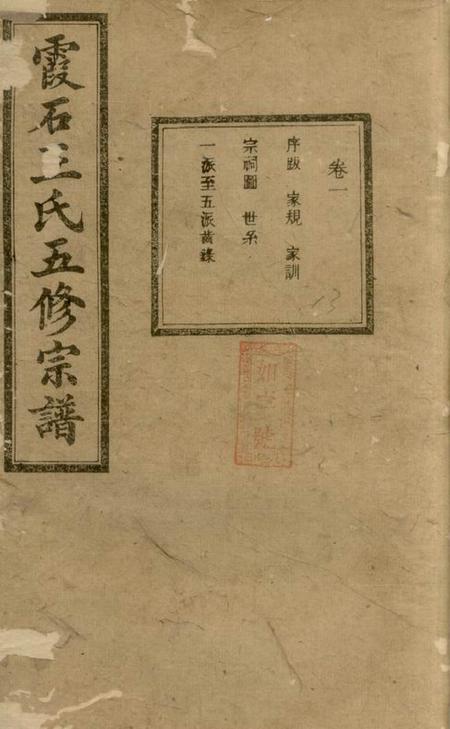 霞石王氏五修宗譜
卷一
序跋 家規 家訓
宗祠圖 世系
一派至五派齒錄
13